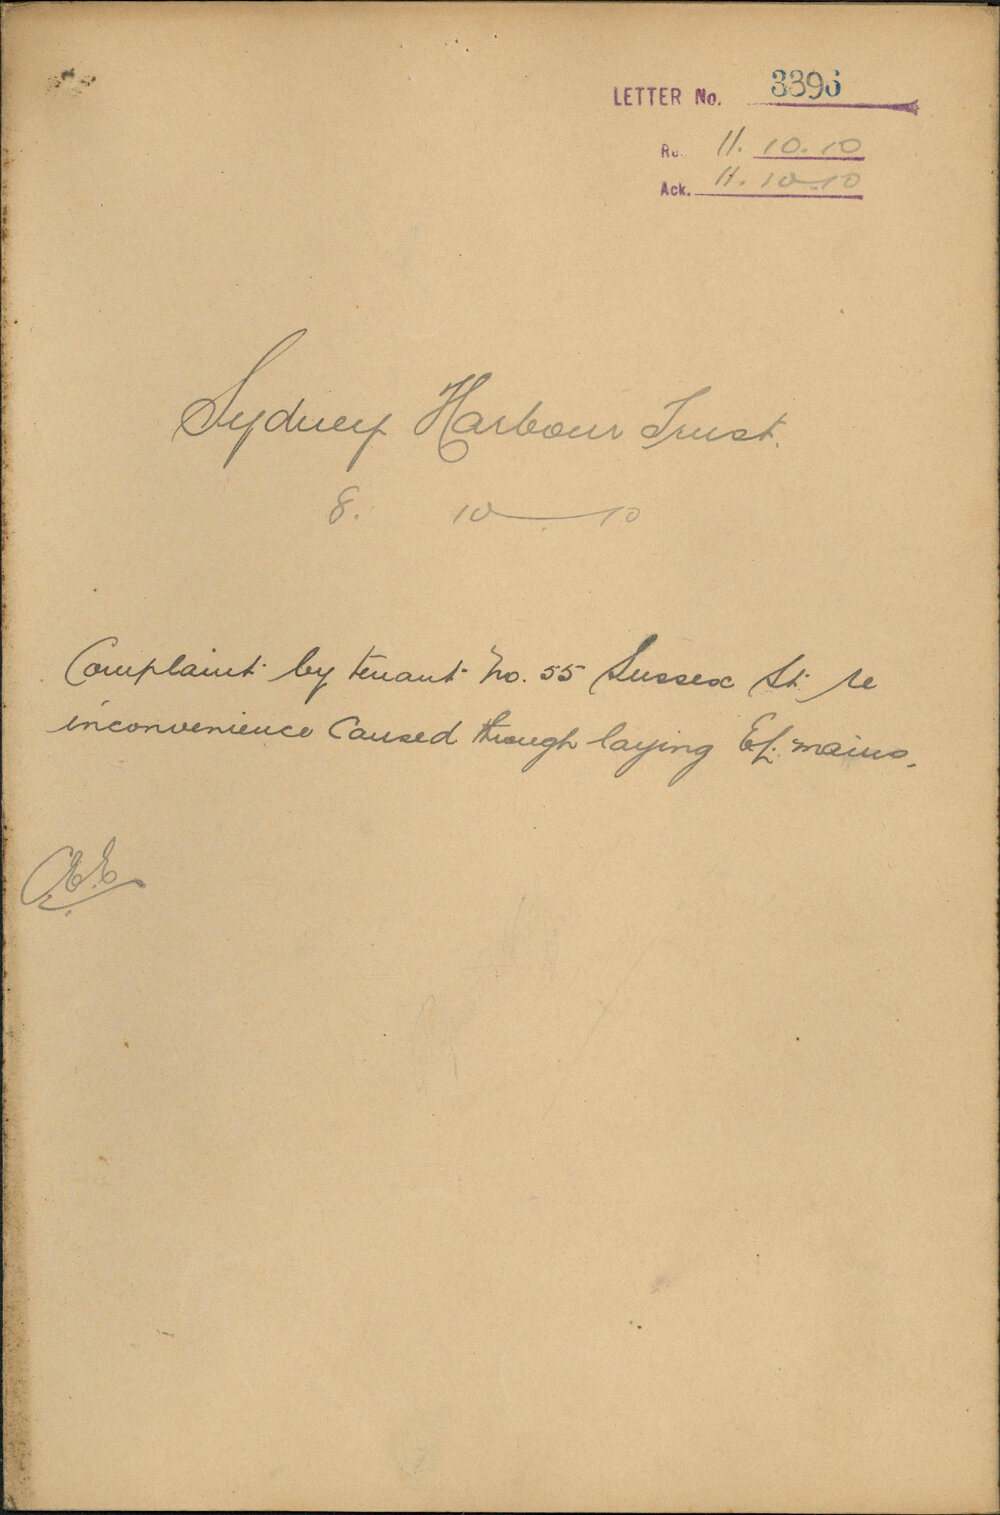 LETTER No. 3396
Re. 11. 10. 10
Ack. 11. 10. 10
Sydney Harbour Trust.
8. 10 10
Complaint by tenant No. 55 Sussex St. re
inconvenience caused through laying E.L. mains.